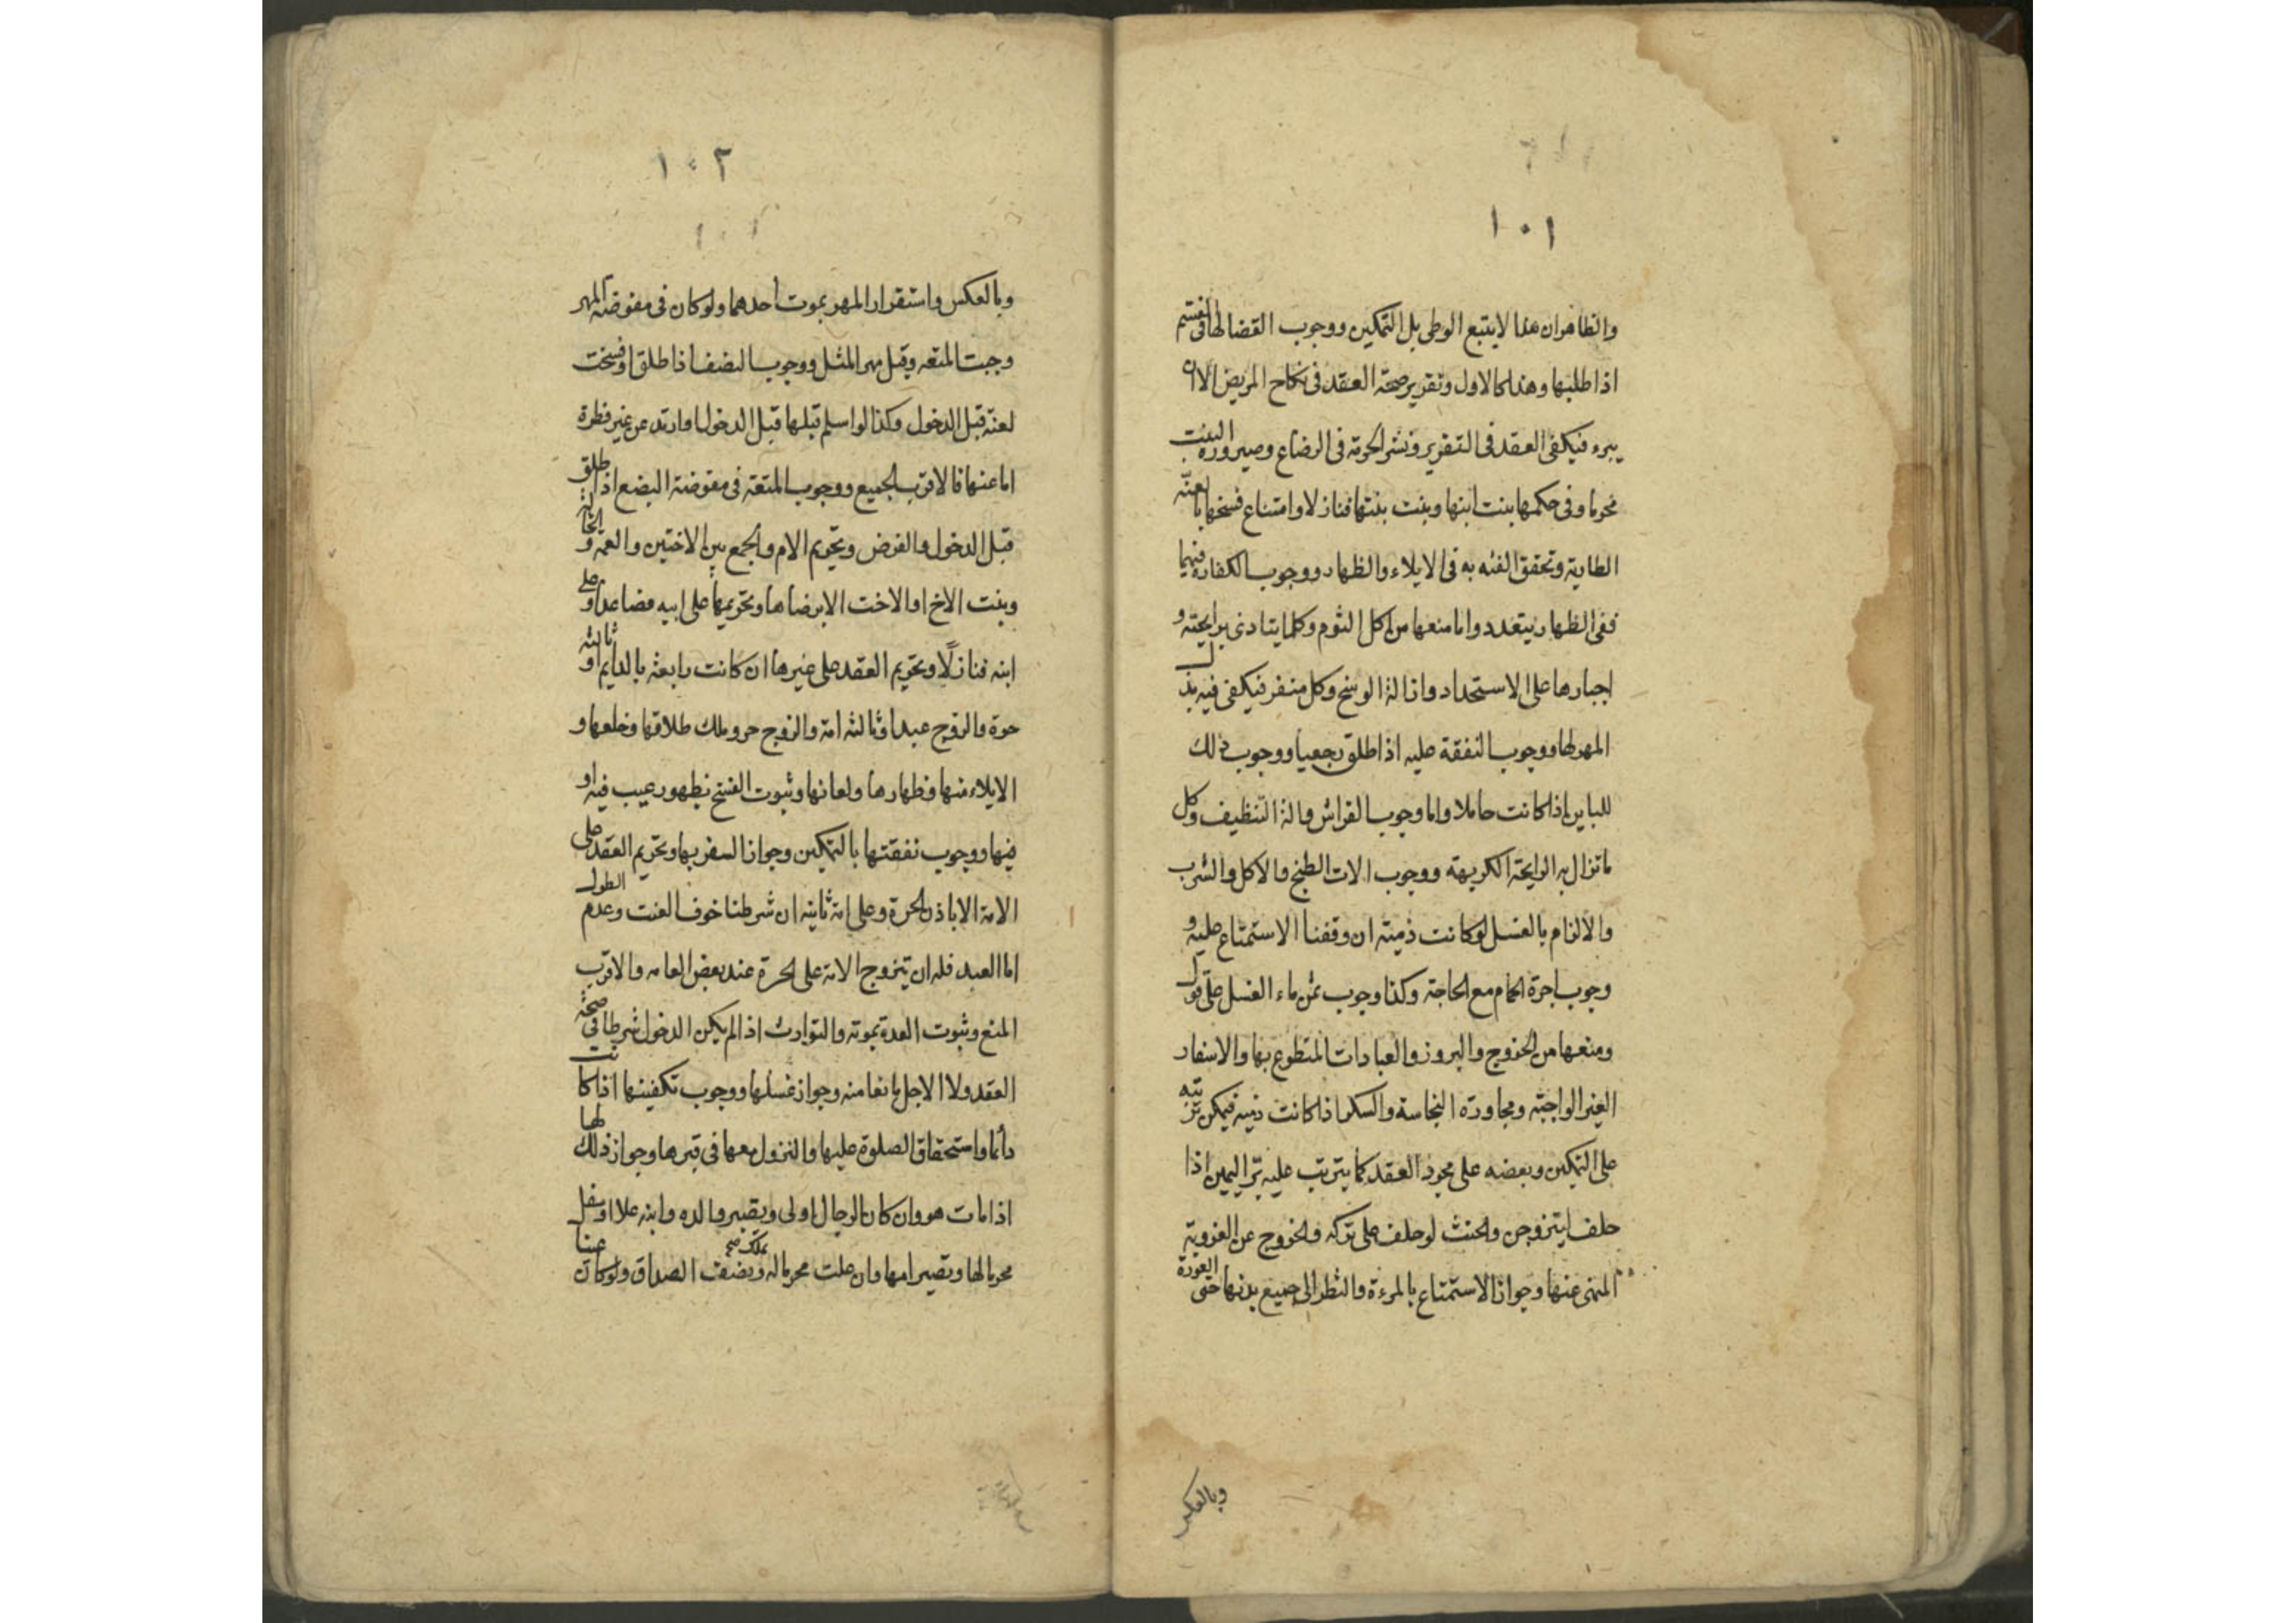 ١٠١
والظاهران هذا لايتبع الوطى بل التمكين ووجوب القضا لها فى القسم
اذا طلبها وهذا كالاول وتقرير صحة العقد فى نكاح المريض الا ان
يبرء فيكفى العقد فى التقرير ونشر الحرمة فى الرضاع وصيرورة البنت
محرما وفى حكمها بنت ابنها وبنت بنتها فنازلا وامتناع فسخها بالعنّة
الطارية وتحقق الفئه به فى الايلاء والظهار ووجوب الكفاره فيهما
ففى الظهار يتعدد واما منعها من اكل الثوم وكلما يتادى برايحته و
اجبارها على الاستحداد وازالة الوسخ وكل منفر فيكفى فيه بذل
المهر لها ووجوب النفقة عليه اذا طلق رجعيا ووجوب ذلك
للباين اذا كانت حاملا واما وجوب الفراش والة التنظيف وكل
ما تزال به الرايحة الكريهة ووجوب الات الطبخ والاكل والشرب
والالزام بالغسل لو كانت ذمية ان وقفنا الاستمتاع عليه و
وجوب اجرة الحمام مع الحاجة وكذا وجوب ثمن ماء الغسل على قول
ومنعها من الخروج والبروز والعبادات المتطوع بها والاسفار
الغير الواجبة ومجاورة النجاسة والسكر اذا كانت ذمية فيمكن ترتبه
على التمكين وبعضه على مجرد العقد كما يترتب عليه برّ اليمين اذا
حلف ليتزوجن والحنث لو حلف على تركه والخروج عن العزوبة
المنهى عنها وجواز الاستمتاع بالمرءة والنظر الى جميع بدنها حتى العورة
وبالعكس
١٠٢
وبالعكس واستقرار المهر بموت احدهما ولو كان فى مفوضة المهر
وجبت المتعه وقيل مهر المثل ووجوب النصف اذا طلق او فسخت
لعنة قبل الدخول وكذا لو اسلم قبلها قبل الدخول او ارتد عن غير فطرة
اما عنها فالاقرب الجميع ووجوب المتعة فى مفوضة البضع اذا طلق
قبل الدخول والفرض وتحريم الام والجمع بين الاختين والعمة والخالة
وبنت الاخ او الاخت الا برضاها وتحريمها على ابيه فصاعدا وعلى
ابنه فنازلًا وتحريم العقد على غيرها ان كانت رابعة بالدايم او ثالثه
حرة والزوج عبدا وثالثه امة والزوج حر وملك طلاقها وخلعها و
الايلاء منها وظهارها ولعانها وثبوت الفسخ بظهور عيب فيه او
فيها ووجوب نفقتها بالتمكين وجواز السفر بها وتحريم العقد على
الامة الا باذن الحرة وعلى امة ثانيه ان شرطنا خوف العنت وعدم الطول
اما العبد فله ان يتزوج الامة على الحرة عند بعض العامه والاقرب
المنع وثبوت العدة بموته والتوارث اذا لم يكن الدخول شرطا فى صحّة
العقد ولا الاجل مانعا منه وجواز غسلها ووجوب تكفينها اذا كانت
دائما واستحقاق الصلوة عليها والنزول معها فى قبرها وجواز ذلك لها
اذا مات هو وان كان الرجال اولى ويصير والده وابنه علا او سفل
محرما لها وتصير امها وان علت محرما له وبملك صح نصف الصداق ولو كان عينا